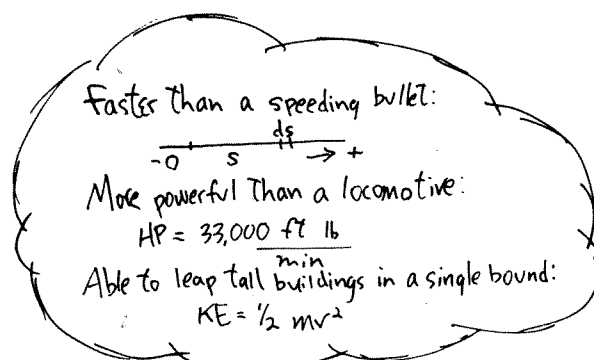 Faster Than a speeding bullet:
ds
-0 s → +
More powerful Than a locomotive:
HP = 33,000 ft lb
min
Able to leap tall buildings in a single bound:
KE = ½ mv²